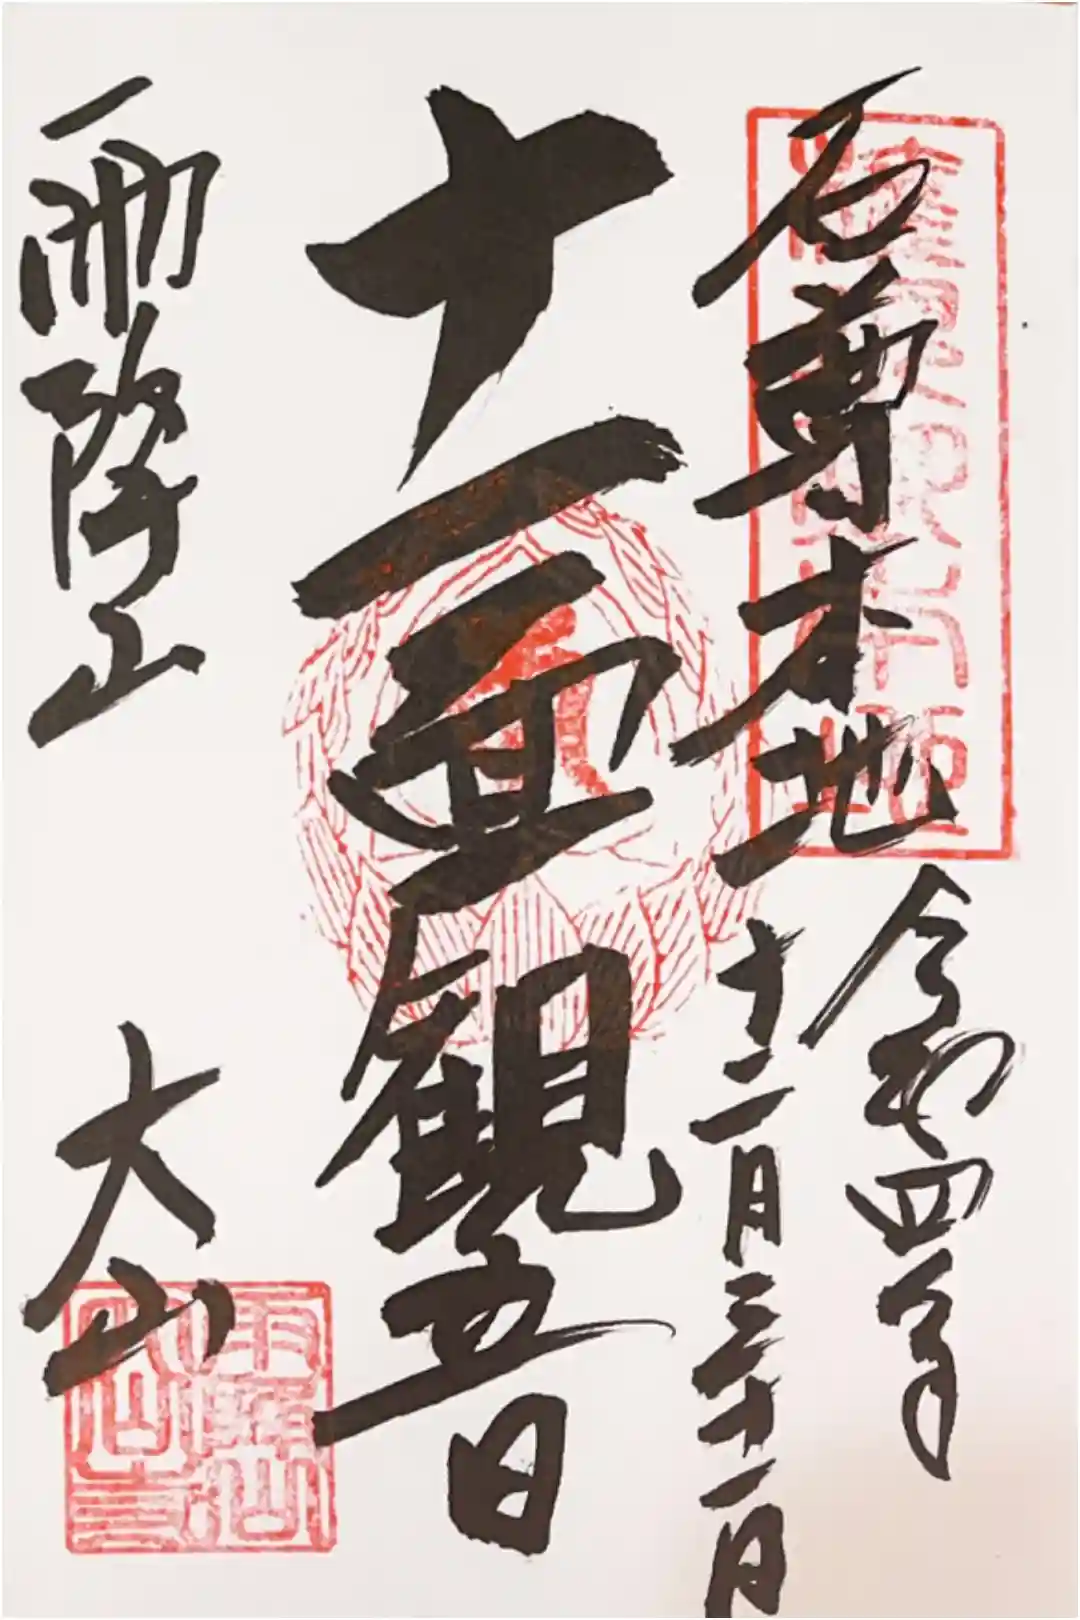 石尊本地
令和四年
十二月三十一日
十一面観音
雨降山
大山寺